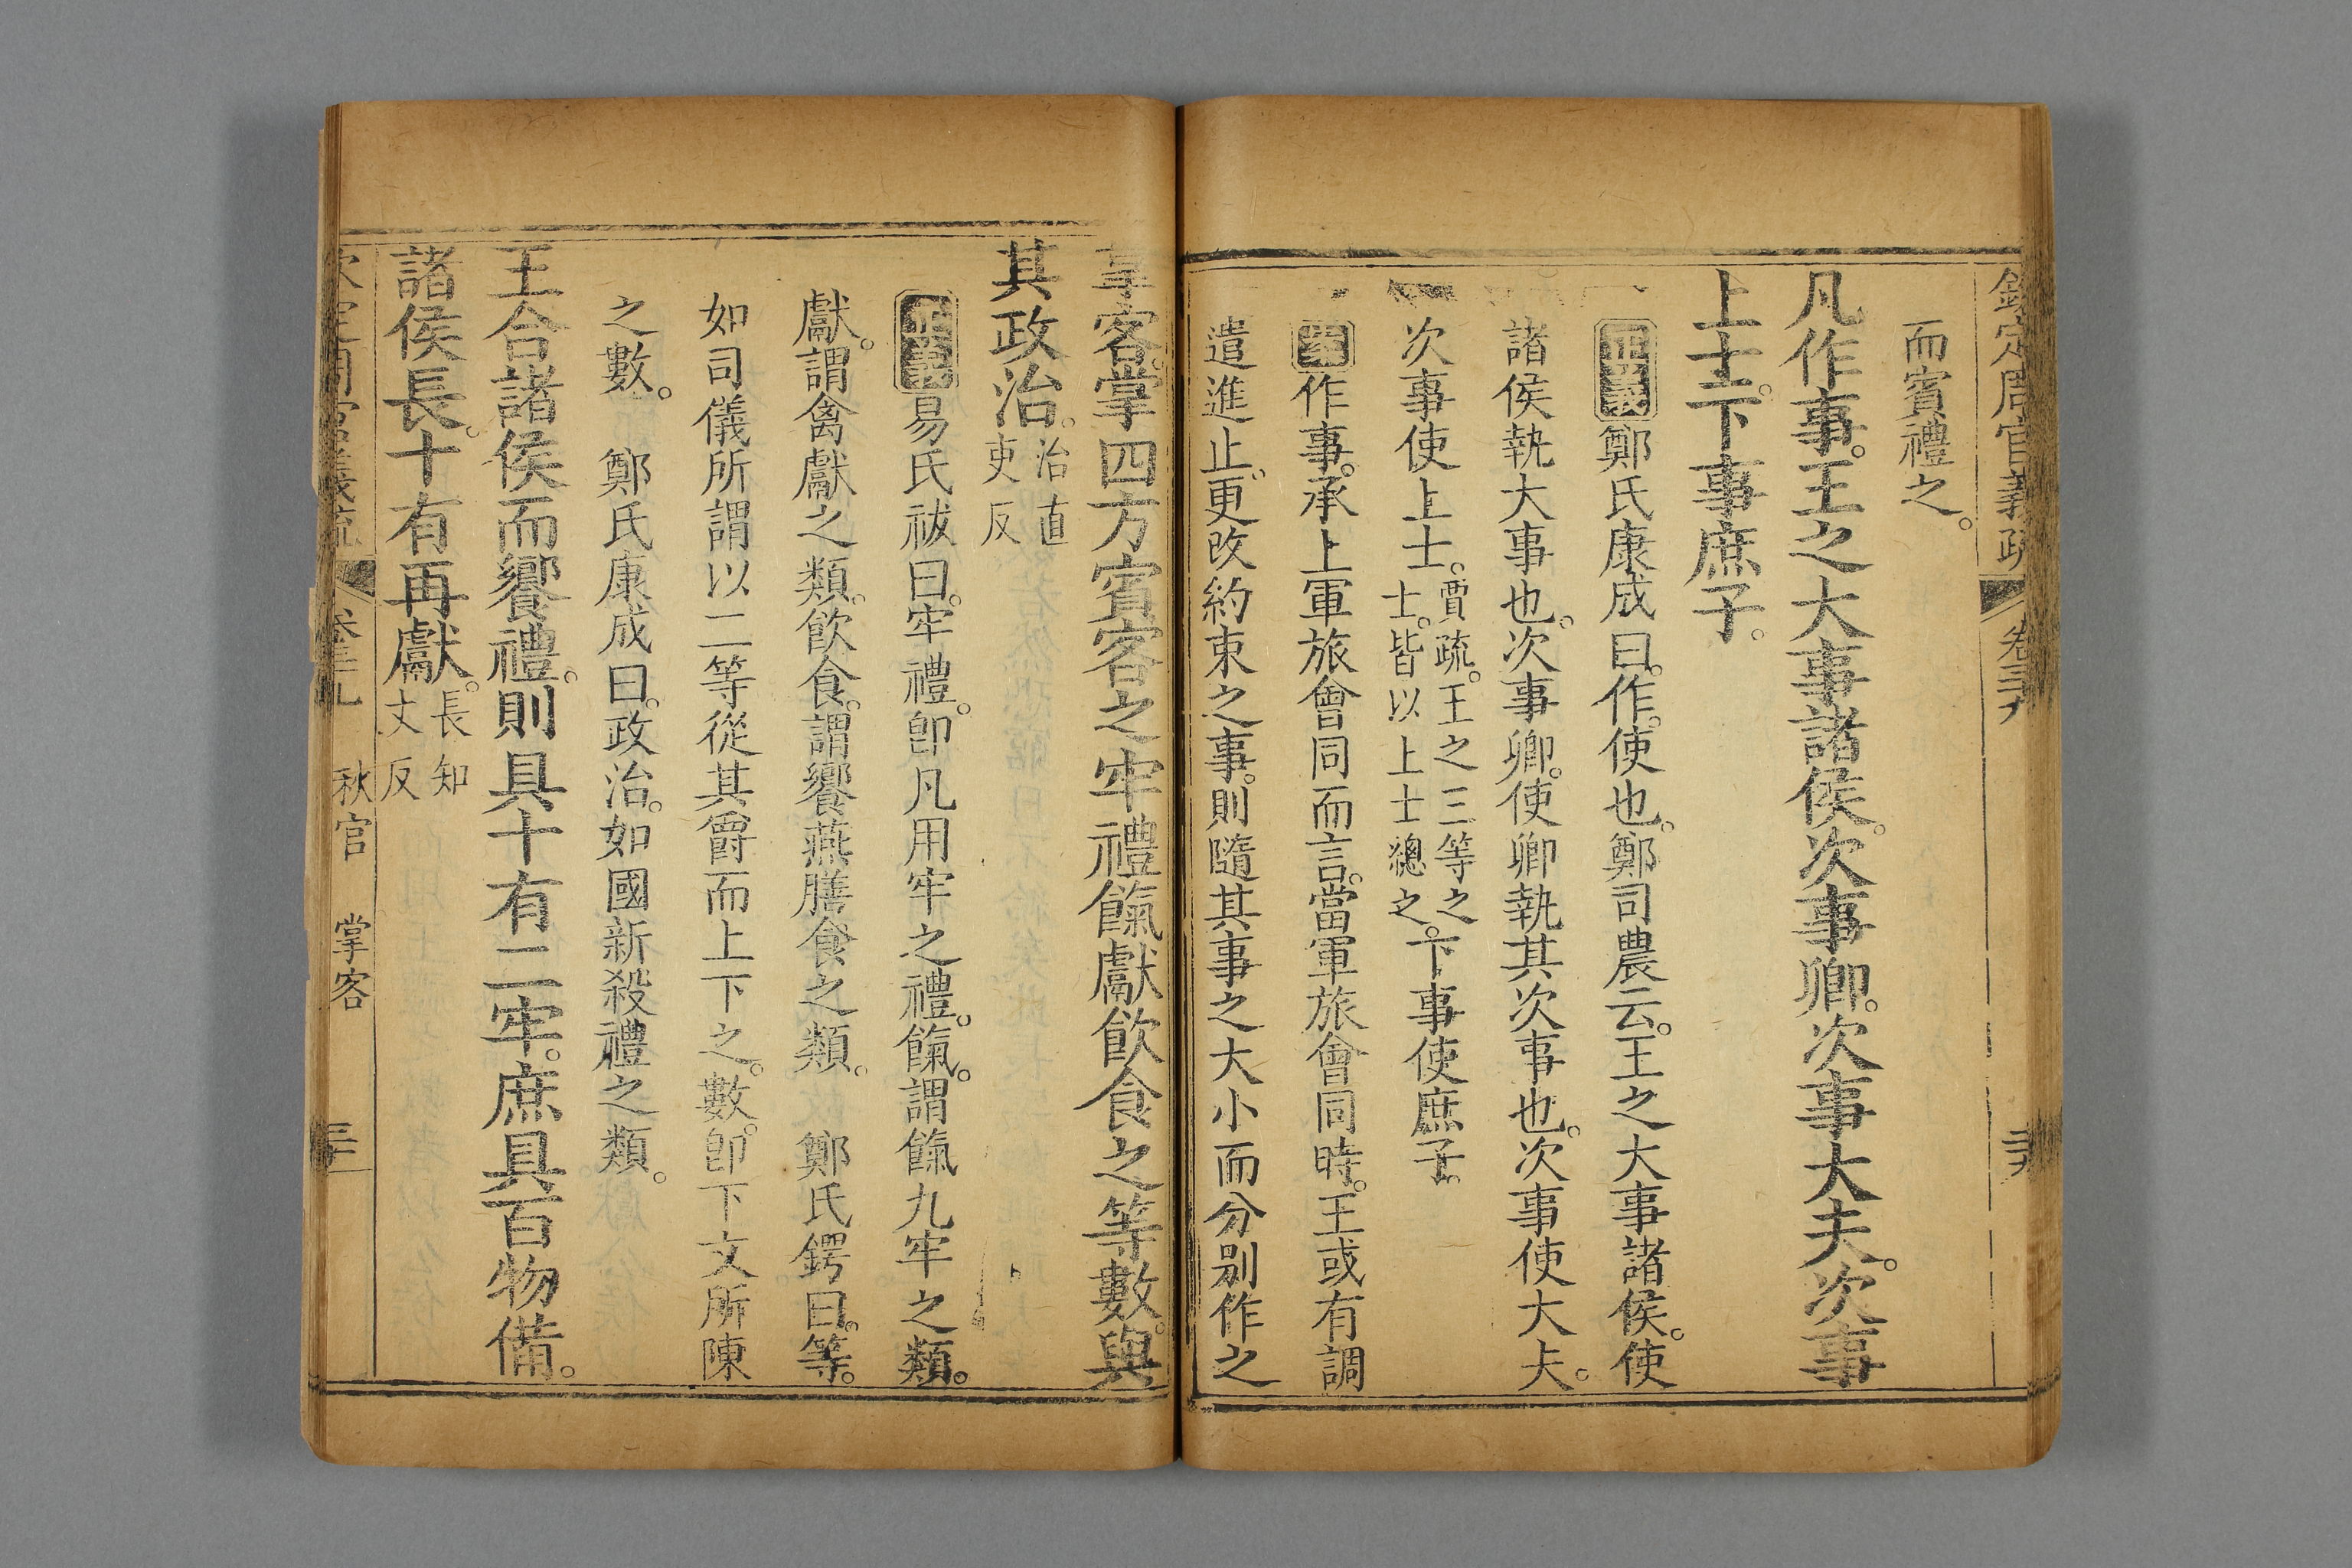 欽定周官義疏 卷三十九 二十九
而賓禮之。
凡作事。王之大事諸侯。次事卿。次事大夫。次事
上士。下事庶子。
正義鄭氏康成曰。作。使也。鄭司農云。王之大事諸侯。使
諸侯執大事也。次事卿。使卿執其次事也。次事使大夫。
次事使上士。賈疏。王之三等之士。皆以上士總之。下事使庶子。
案作事。承上軍旅會同而言。當軍旅會同時。王或有調
遣進止。更改約束之事。則隨其事之大小而分別作之
掌客。掌四方賓客之牢禮餼獻飲食之等數。與
其政治。治直吏反
正義易氏祓曰。牢禮。卽凡用牢之禮。餼。謂餼九牢之類。
獻。謂禽獻之類。飲食。謂饗燕膳食之類。 鄭氏鍔曰。等。
如司儀所謂以二等從其爵而上下之。數。卽下文所陳
之數。 鄭氏康成曰。政治。如國新殺禮之類。
王合諸侯而饗禮。則具十有二牢。庶具百物備。
諸侯長。十有再獻。長知丈反
欽定周官義疏 卷三十九 秋官 掌客 三十